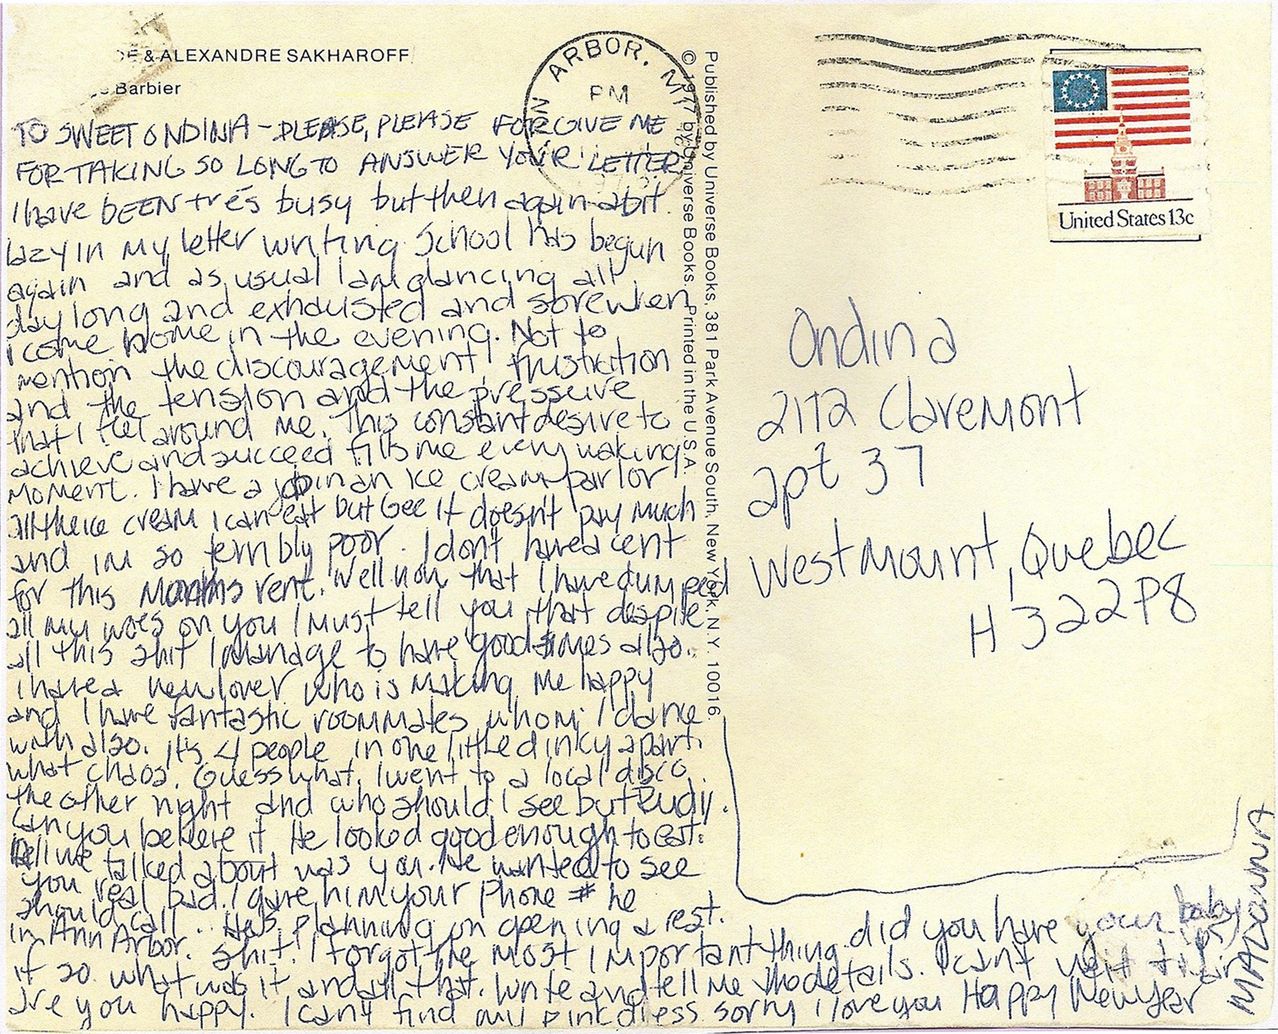 DE & ALEXANDRE SAKHAROFF
Barbier
TO SWEET ONDINA - PLEASE, PLEASE FORGIVE ME
FOR TAKING SO LONG TO ANSWER YOUR LETTER
I have BEEN très busy but then again a bit
lazy in my letter writing. School has begun
again and as usual I am dancing all
day long and exhausted and sore when
I come home in the evening. Not to
mention the discouragement, frustration
and the tension and the pressure
that I feel around me. This constant desire to
achieve and succeed fills me every waking
moment. I have a job in an ice cream parlor
all the ice cream I can eat but Gee it doesn't pay much
and im so terribly poor. I dont have a cent
for this months rent. Well now that I have dumped
all my woes on you I must tell you that despite
all this shit I manage to have good times also.
I have a new lover who is making me happy
and I have fantastic roommates whom I dance
with also. It's 4 people in one little dinky apart.
what chaos. Guess what. I went to a local disco
the other night and who should I see but Rudy.
Can you believe it He looked good enough to eat.
All we talked about was you. He wanted to see
you real bad. I gave him your phone # he
should call.. Hes planning on opening a rest.
in Ann Arbor. Shit. I forgot the most important thing. did you have your baby
if so what was it and all that. Write and tell me the details. I cant wait to
are you happy. I cant find my pink dress sorry I love you Happy New Year
MADONNA
Published by Universe Books, 381 Park Avenue South, New York, N.Y. 10016.
© 1977 by Universe Books. Printed in the U.S.A.
ANN ARBOR, MI
PM
United States 13c
Ondina
2172 Claremont
apt 37
Westmount, Quebec
H3Z2P8